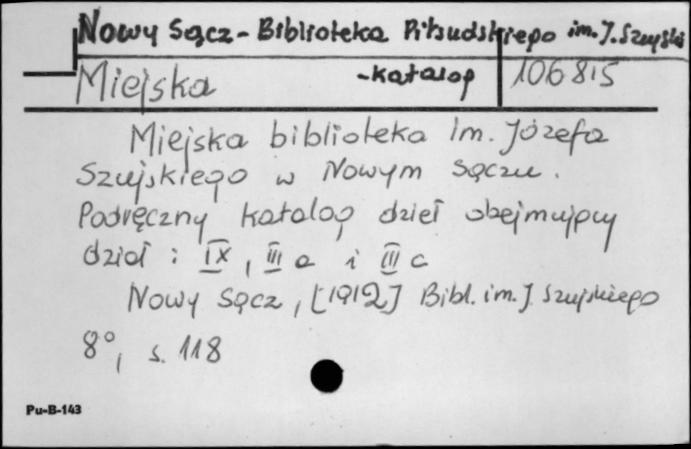 Nowy Sącz - Biblioteka Piłsudskiego im. J. Szujski
Miejska - katalog 106815
Miejska biblioteka im. Józefa
Szujskiego w Nowym Sączu.
Podręczny katalog dzieł obejmujący
dział: IX, III a i III c
Nowy Sącz, [1912] Bibl. im. J. Szujskiego
8°, s. 118
Pu-B-143